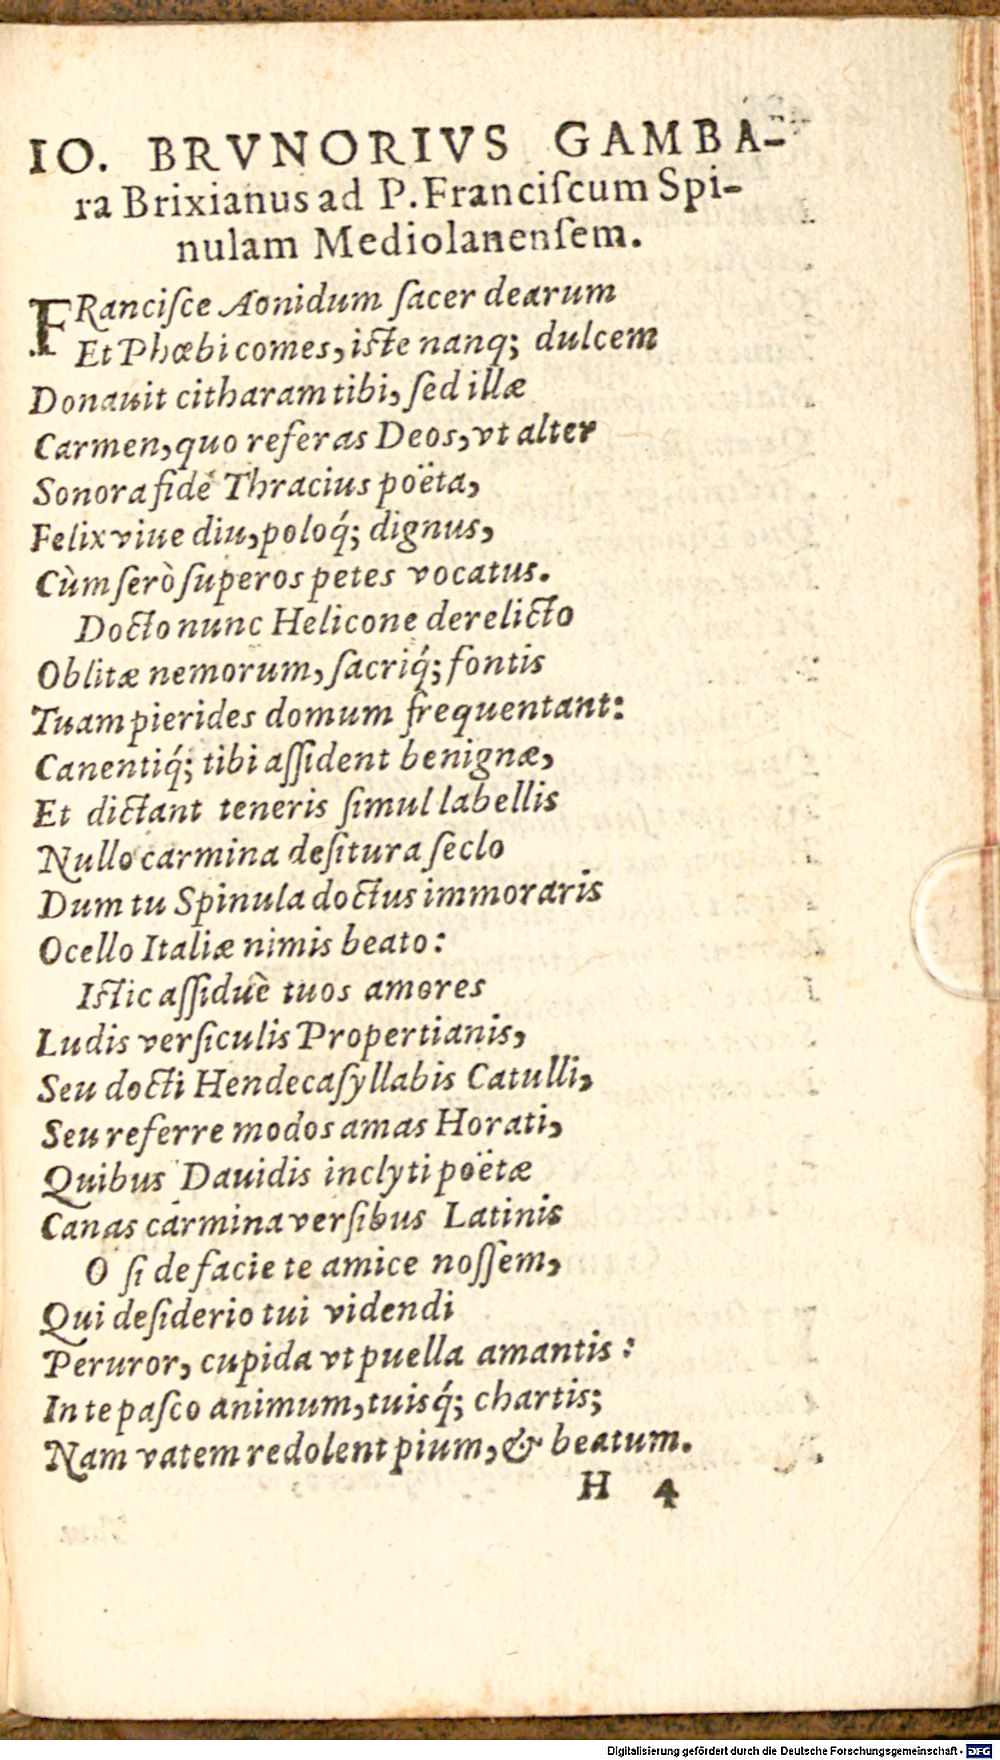 IO. BRVNORIVS GAMBA-
ra Brixianus ad P. Franciſcum Spi-
nulam Mediolanenſem.
FRanciſce Aonidum ſacer dearum
Et Phœbi comes, iſte nanq; dulcem
Donauit citharam tibi, ſed illæ
Carmen, quo referas Deos, vt alter
Sonora fide Thracius poëta,
Felix viue diu, poloq́; dignus,
Cùm ſerò ſuperos petes vocatus.
Docto nunc Helicone derelicto
Oblitæ nemorum, ſacriq́; fontis
Tuam pierides domum frequentant:
Canentiq́; tibi aſſident benignæ,
Et dictant teneris ſimul labellis
Nullo carmina deſitura ſeclo
Dum tu Spinula doctus immoraris
Ocello Italiæ nimis beato:
Iſtic aſſiduè tuos amores
Ludis verſiculis Propertianis,
Seu docti Hendecaſyllabis Catulli,
Seu referre modos amas Horati,
Quibus Dauidis inclyti poëtæ
Canas carmina verſibus Latinis
O ſi de facie te amice noſſem,
Qui deſiderio tui videndi
Peruror, cupida vt puella amantis:
In te paſco animum, tuisq́; chartis;
Nam vatem redolent pium, & beatum.
H 4
Digitalisierung gefördert durch die Deutsche Forschungsgemeinschaft - DFG